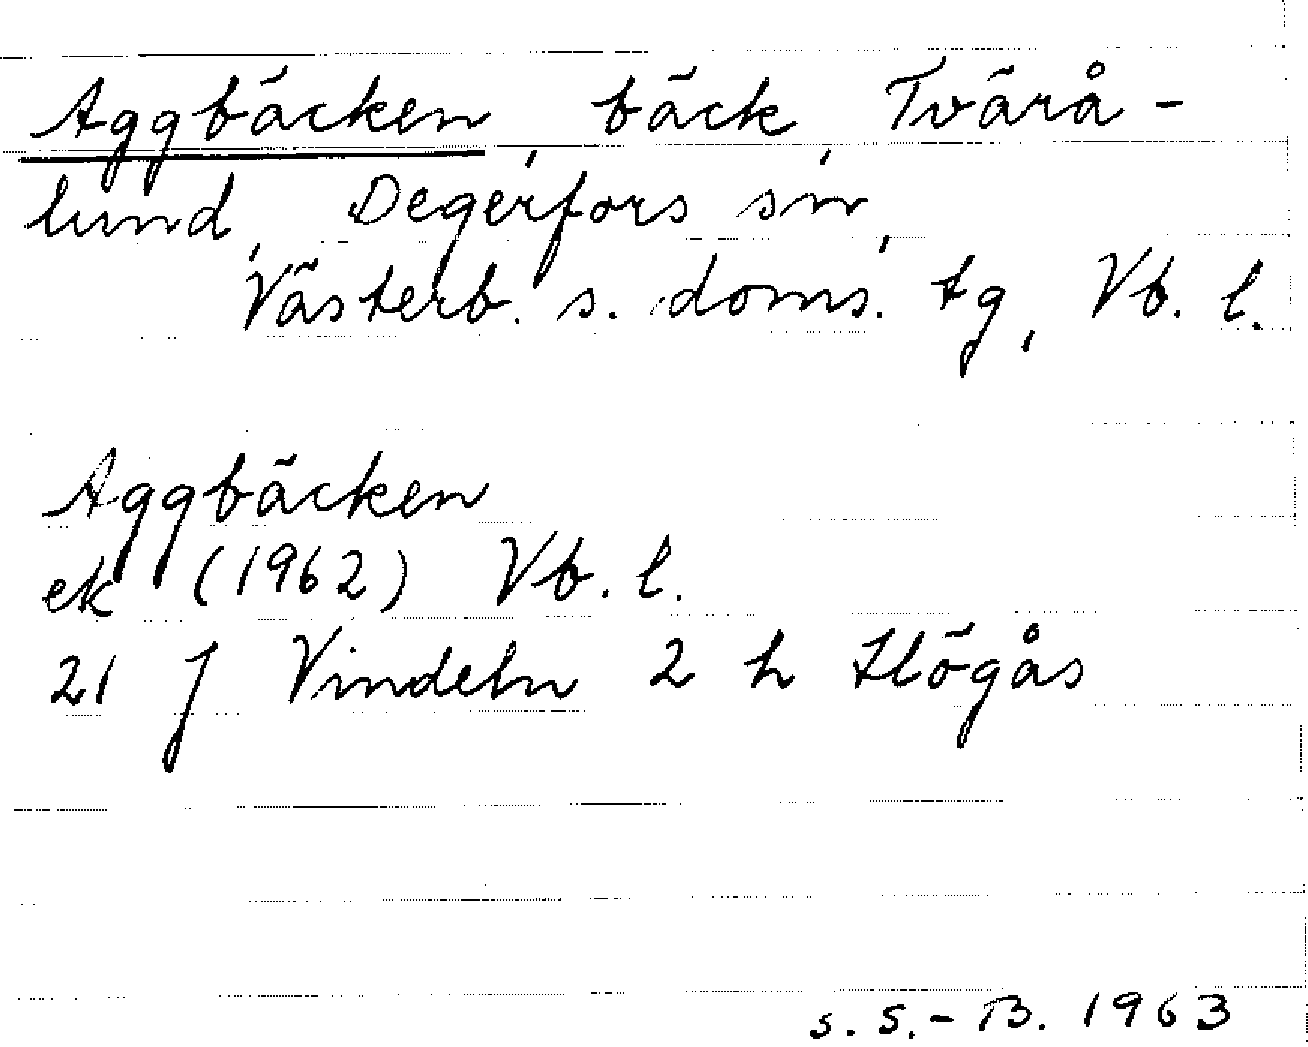 Aggbäcken, bäck, Tvärå-
lund, Degerfors sn,
Västerb. s. doms. tg, Vb. l.
Aggbäcken
ek (1962) Vb. l.
21 J Vindeln 2 h Högås
S. S.-B. 1963